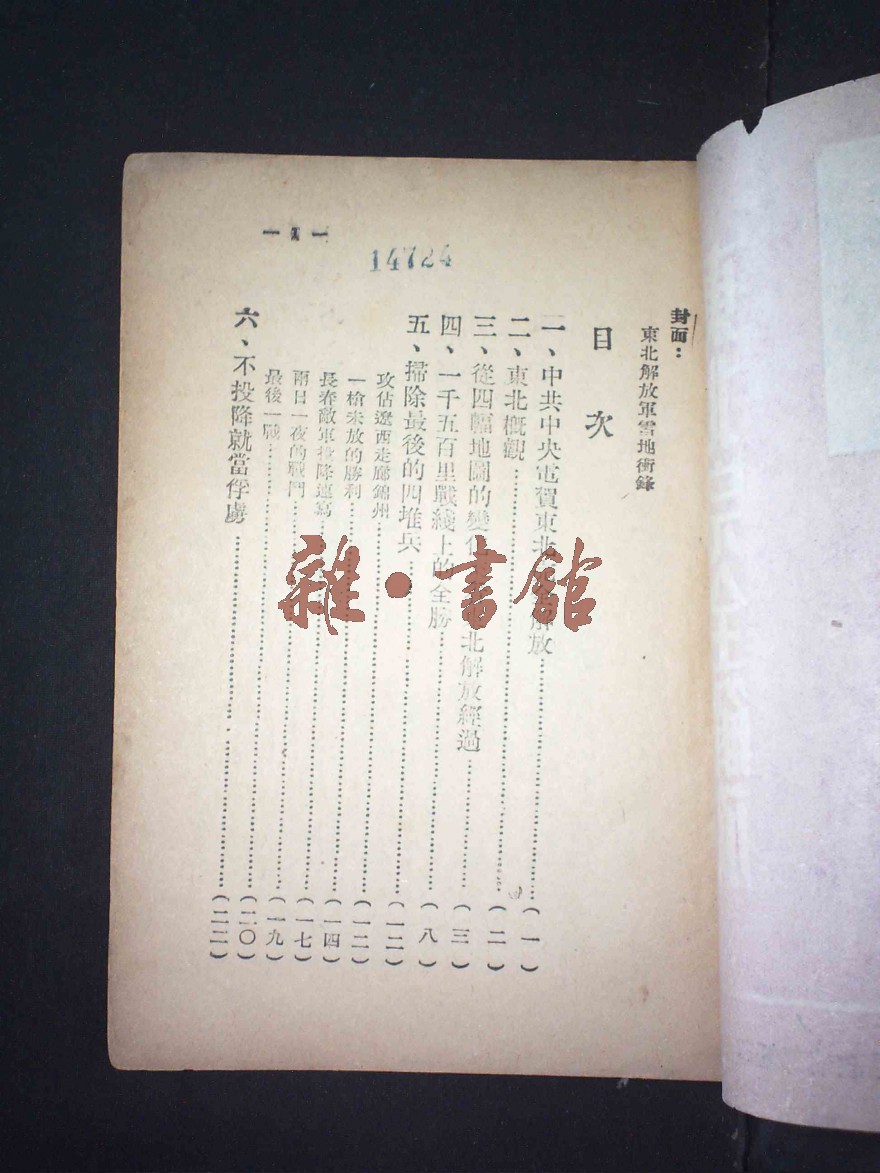 封面：
東北解放軍雪地衝鋒
目次
一、中共中央電賀東北解放……(一)
二、東北概觀……(二)
三、從四幅地圖的變化北解放經過……(三)
四、一千五百里戰綫上的全勝……(八)
五、掃除最後的四堆兵……(一二)
攻佔遼西走廊錦州……(一二)
一槍未放的勝利……(一四)
長春敵軍投降速寫……(一七)
兩日一夜的戰鬥……(一九)
最後一戰……(二〇)
六、不投降就當俘虜……(二二)
— 1 —
14724
雜·書館